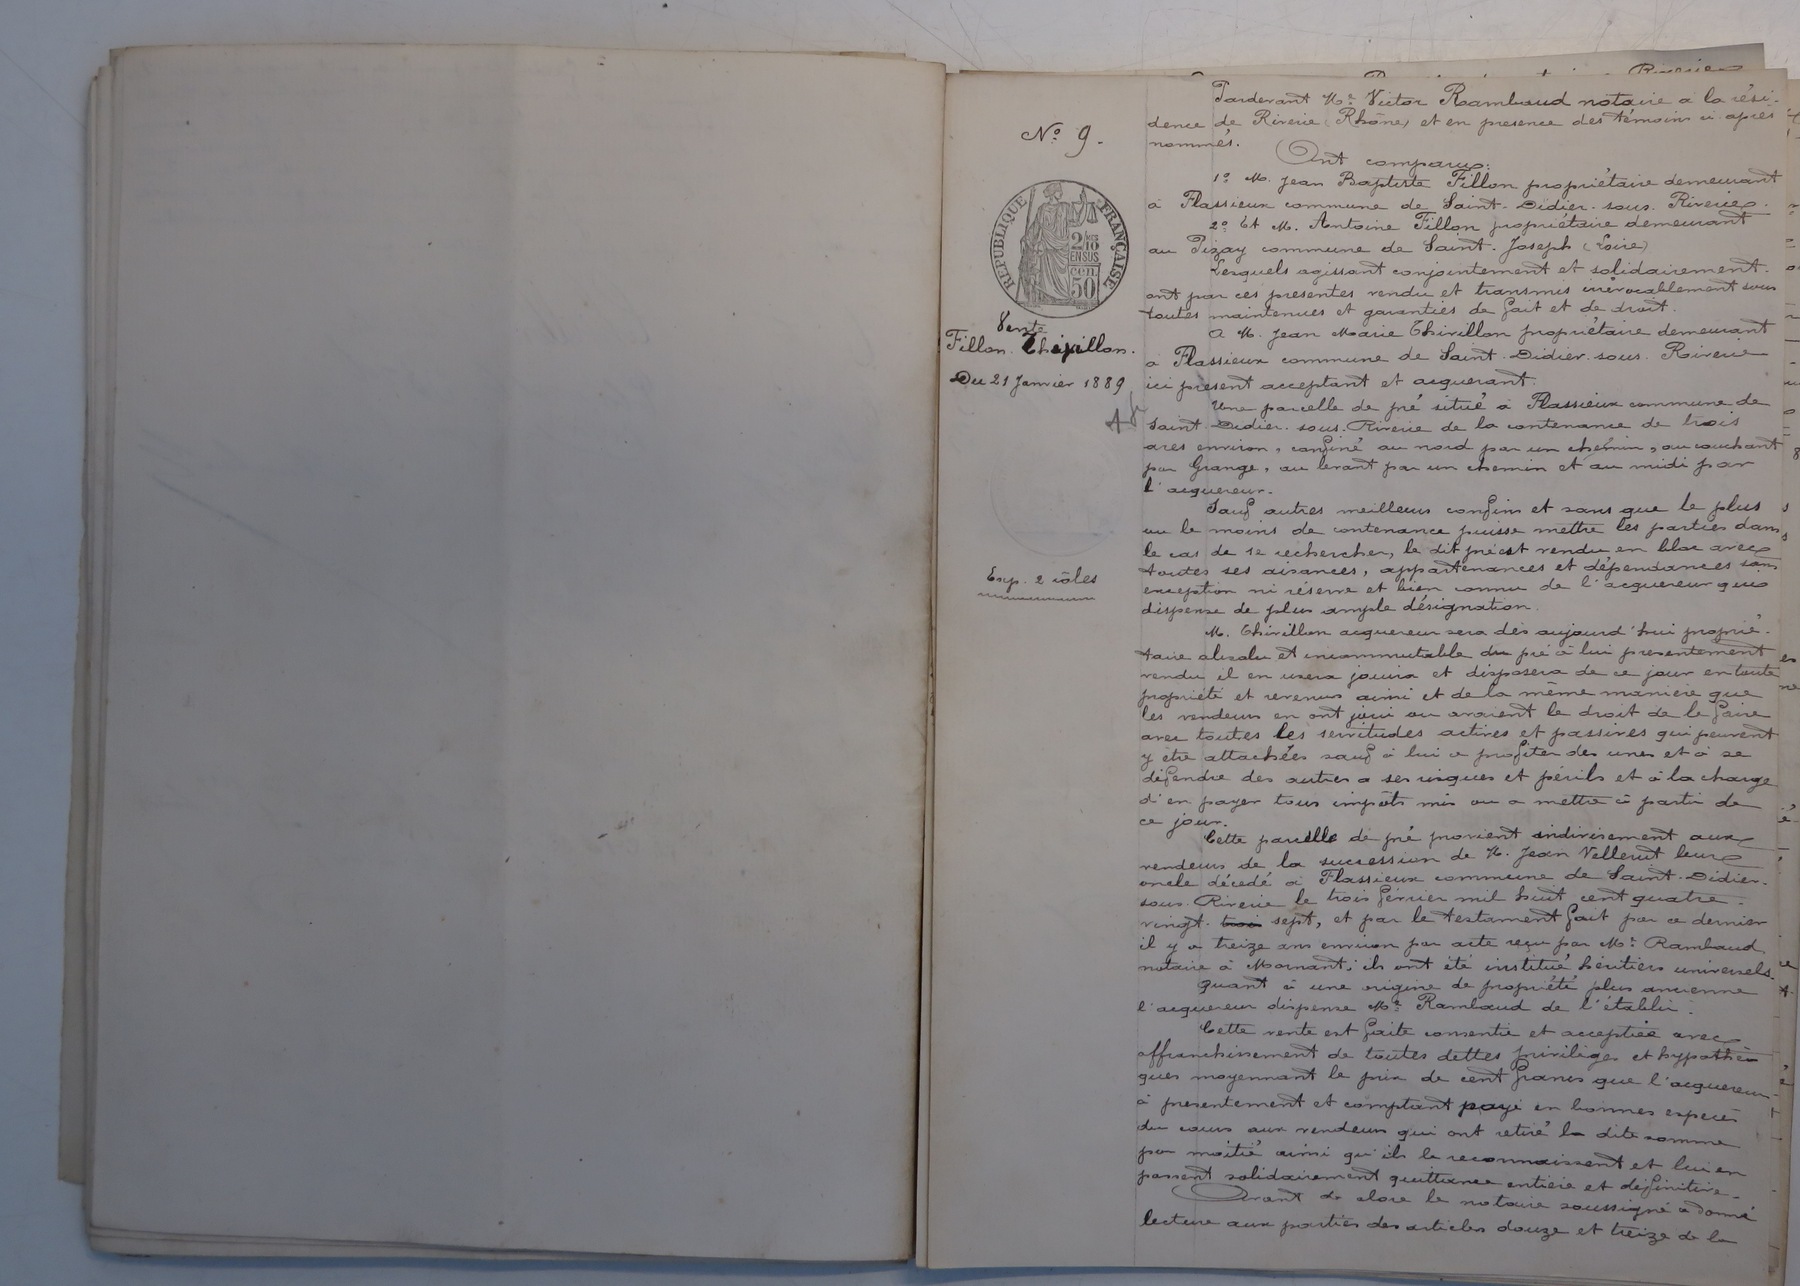 Riverie
Pardevant Me Victor Rambaud notaire à la rési-
dence de Riverie (Rhône) et en presence des témoins ci après
nommés.
Ont comparus:
1o M. Jean Baptiste Fillon propriétaire demeurant
à Flassieux commune de Saint-Didier-sous-Riverie.
2o Et M. Antoine Fillon propriétaire demeurant
au Pizay commune de Saint-Joseph (Loire)
Lesquels agissant conjointement et solidairement
ont par ces présentes vendu et transmis irrévocablement sous
toutes maintenues et garanties de fait et de droit.
A M. Jean Marie Thivillon propriétaire demeurant
à Flassieux commune de Saint-Didier-sous-Riverie
ici présent acceptant et acquerant.
Une parcelle de pré situé à Flassieux commune de
Saint-Didier-sous-Riverie de la contenance de trois
ares environ, confiné au nord par un chemin, au couchant
par Grange, au levant par un chemin et au midi par
l'acquereur.
Sauf autres meilleurs confins et sans que le plus
ou le moins de contenance puisse mettre les parties dans
le cas de se rechercher, le dit pré est vendu en bloc avec
toutes ses aisances, appartenances et dépendances sans
exception ni réserve et bien connu de l'acquereur qui
dispense de plus ample désignation.
M. Thivillon acquereur sera dès aujourd'hui proprié-
taire absolu et incommutable du pré à lui presentement
vendu il en usera jouira et disposera de ce jour en toute
propriété et revenus ainsi et de la même manière que
les vendeurs en ont joui ou avaient le droit de le faire
avec toutes les servitudes actives et passives qui peuvent
y être attachées sauf à lui a profiter des unes et à se
défendre des autres a ses risques et périls et à la charge
d'en payer tous impôts mis ou a mettre à partir de
ce jour.
Cette parcelle de pré provient indivisement aux
vendeurs de la succession de M. Jean Vellerut leur
oncle décédé à Flassieux commune de Saint-Didier-
sous-Riverie le trois février mil huit cent quatre-
vingt-trois sept, et par le testament fait par ce dernier
il y a treize ans environ par acte reçu par Me Rambaud
notaire à Mornant; ils ont été institué héritiers universels.
Quant à une origine de propriété plus ancienne
l'acquereur dispense Me Rambaud de l'établir.
Cette vente est faite consentie et acceptée avec
affranchissement de toutes dettes privilèges et hypothè-
ques moyennant le prix de cent francs que l'acquereur
à presentement et comptant payé en bonnes espèces
du cours aux vendeurs qui ont retiré la dite somme
par moitié ainsi qu'ils le reconnaissent et lui en
passent solidairement quittance entière et définitive.
Avant de clore le notaire soussigné a donné
lecture aux parties des articles douze et treize de la
No 9.
RÉPUBLIQUE FRANÇAISE
2/10
EN SUS
cen.
50
Vente
Fillon. Thivillon.
Du 21 Janvier 1889
48
Exp. 2 rôles